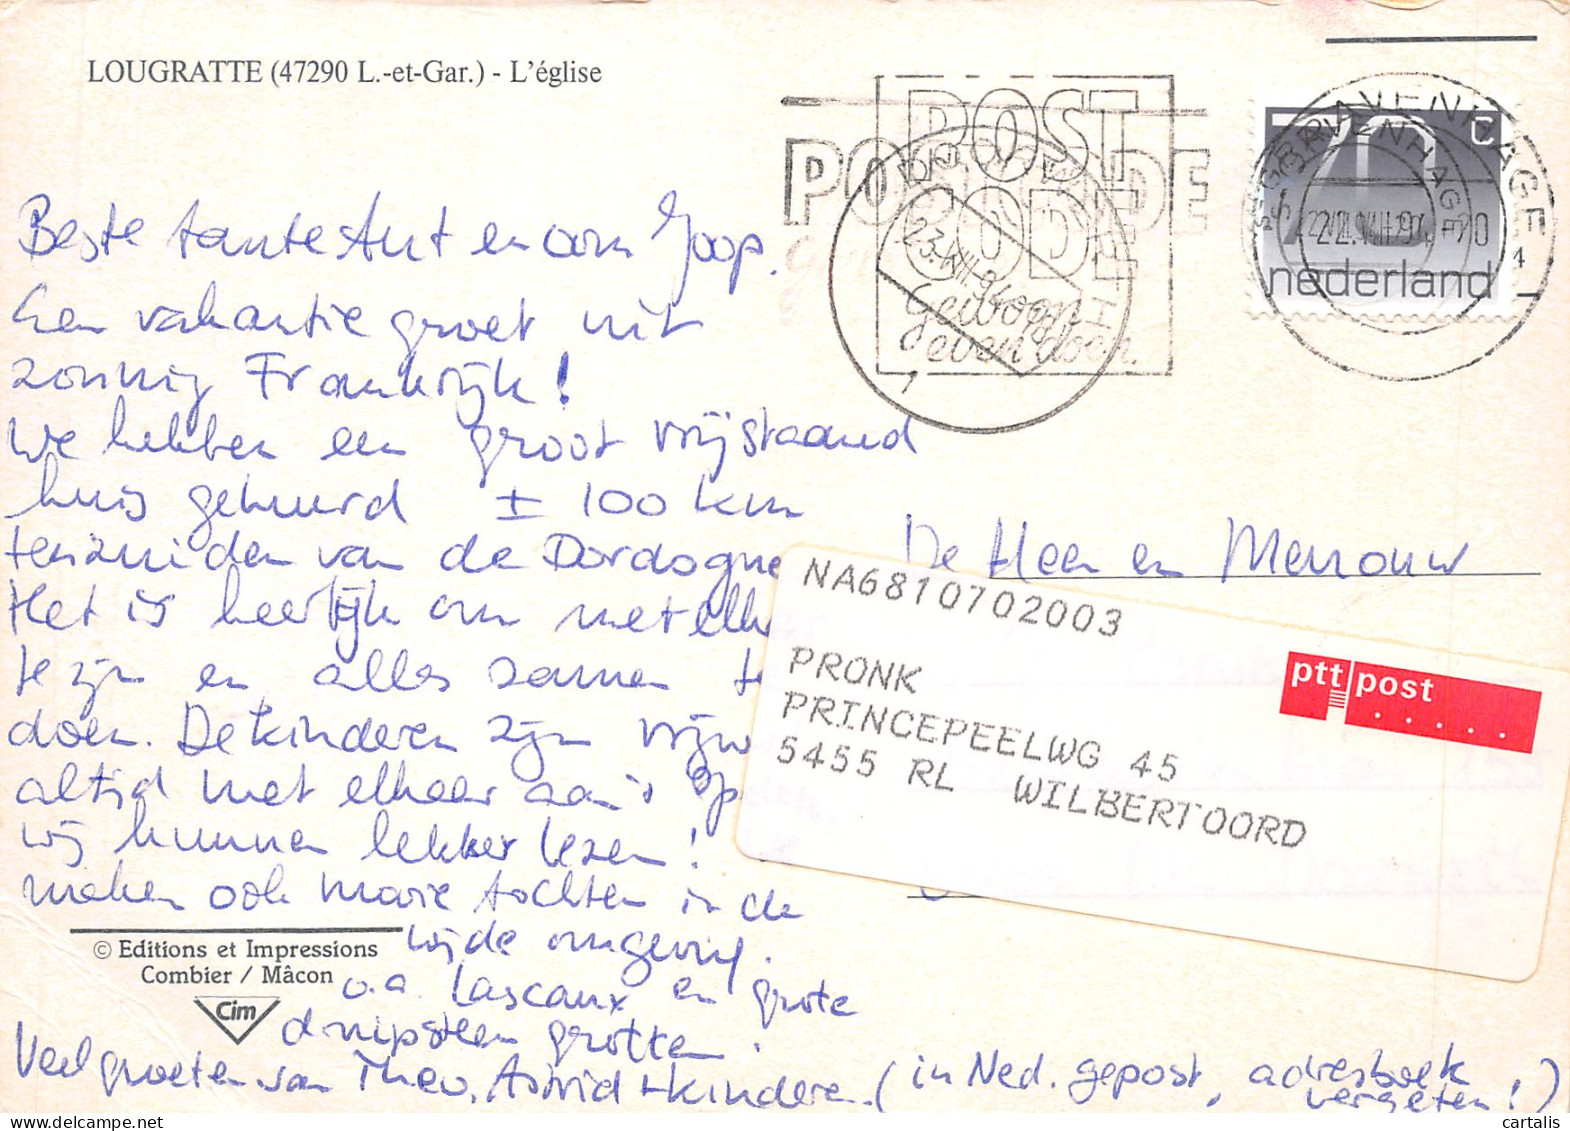 LOUGRATTE (47290 L.-et-Gar.) - L'église
POST
CODE
POSTCODE
Gewoon
even doen.
23.VIII.9
1
70 c
nederland
'S GRAVENHAGE
22.VIII.94
20
4
Beste tante Aut en oom Joop.
Een vakantie groet uit
zonnig Frankrijk!
We hebben een groot vrijstaand
huis gehuurd ± 100 km
tenzuiden van de Dordogne
Het is heerlijk om met elk
te zijn en alles samen te
doen. De kinderen zijn vrijw
altijd met elkeer aan't op
wij kunnen lekker lezen!
maken ook mooie tochten in de
wijde omgeving.
o.a. Lascaux en grote
druipsteen grotten.
Veel groeten van Theo, Astrid + kinderen. (in Ned. gepost, adresboek
vergeten!)
De Heer en Mevrouw
NA6810702003
PRONK
PRINCEPEELWG 45
5455 RL WILBERTOORD
ptt post
© Editions et Impressions
Combier / Mâcon
Cim
cartalis